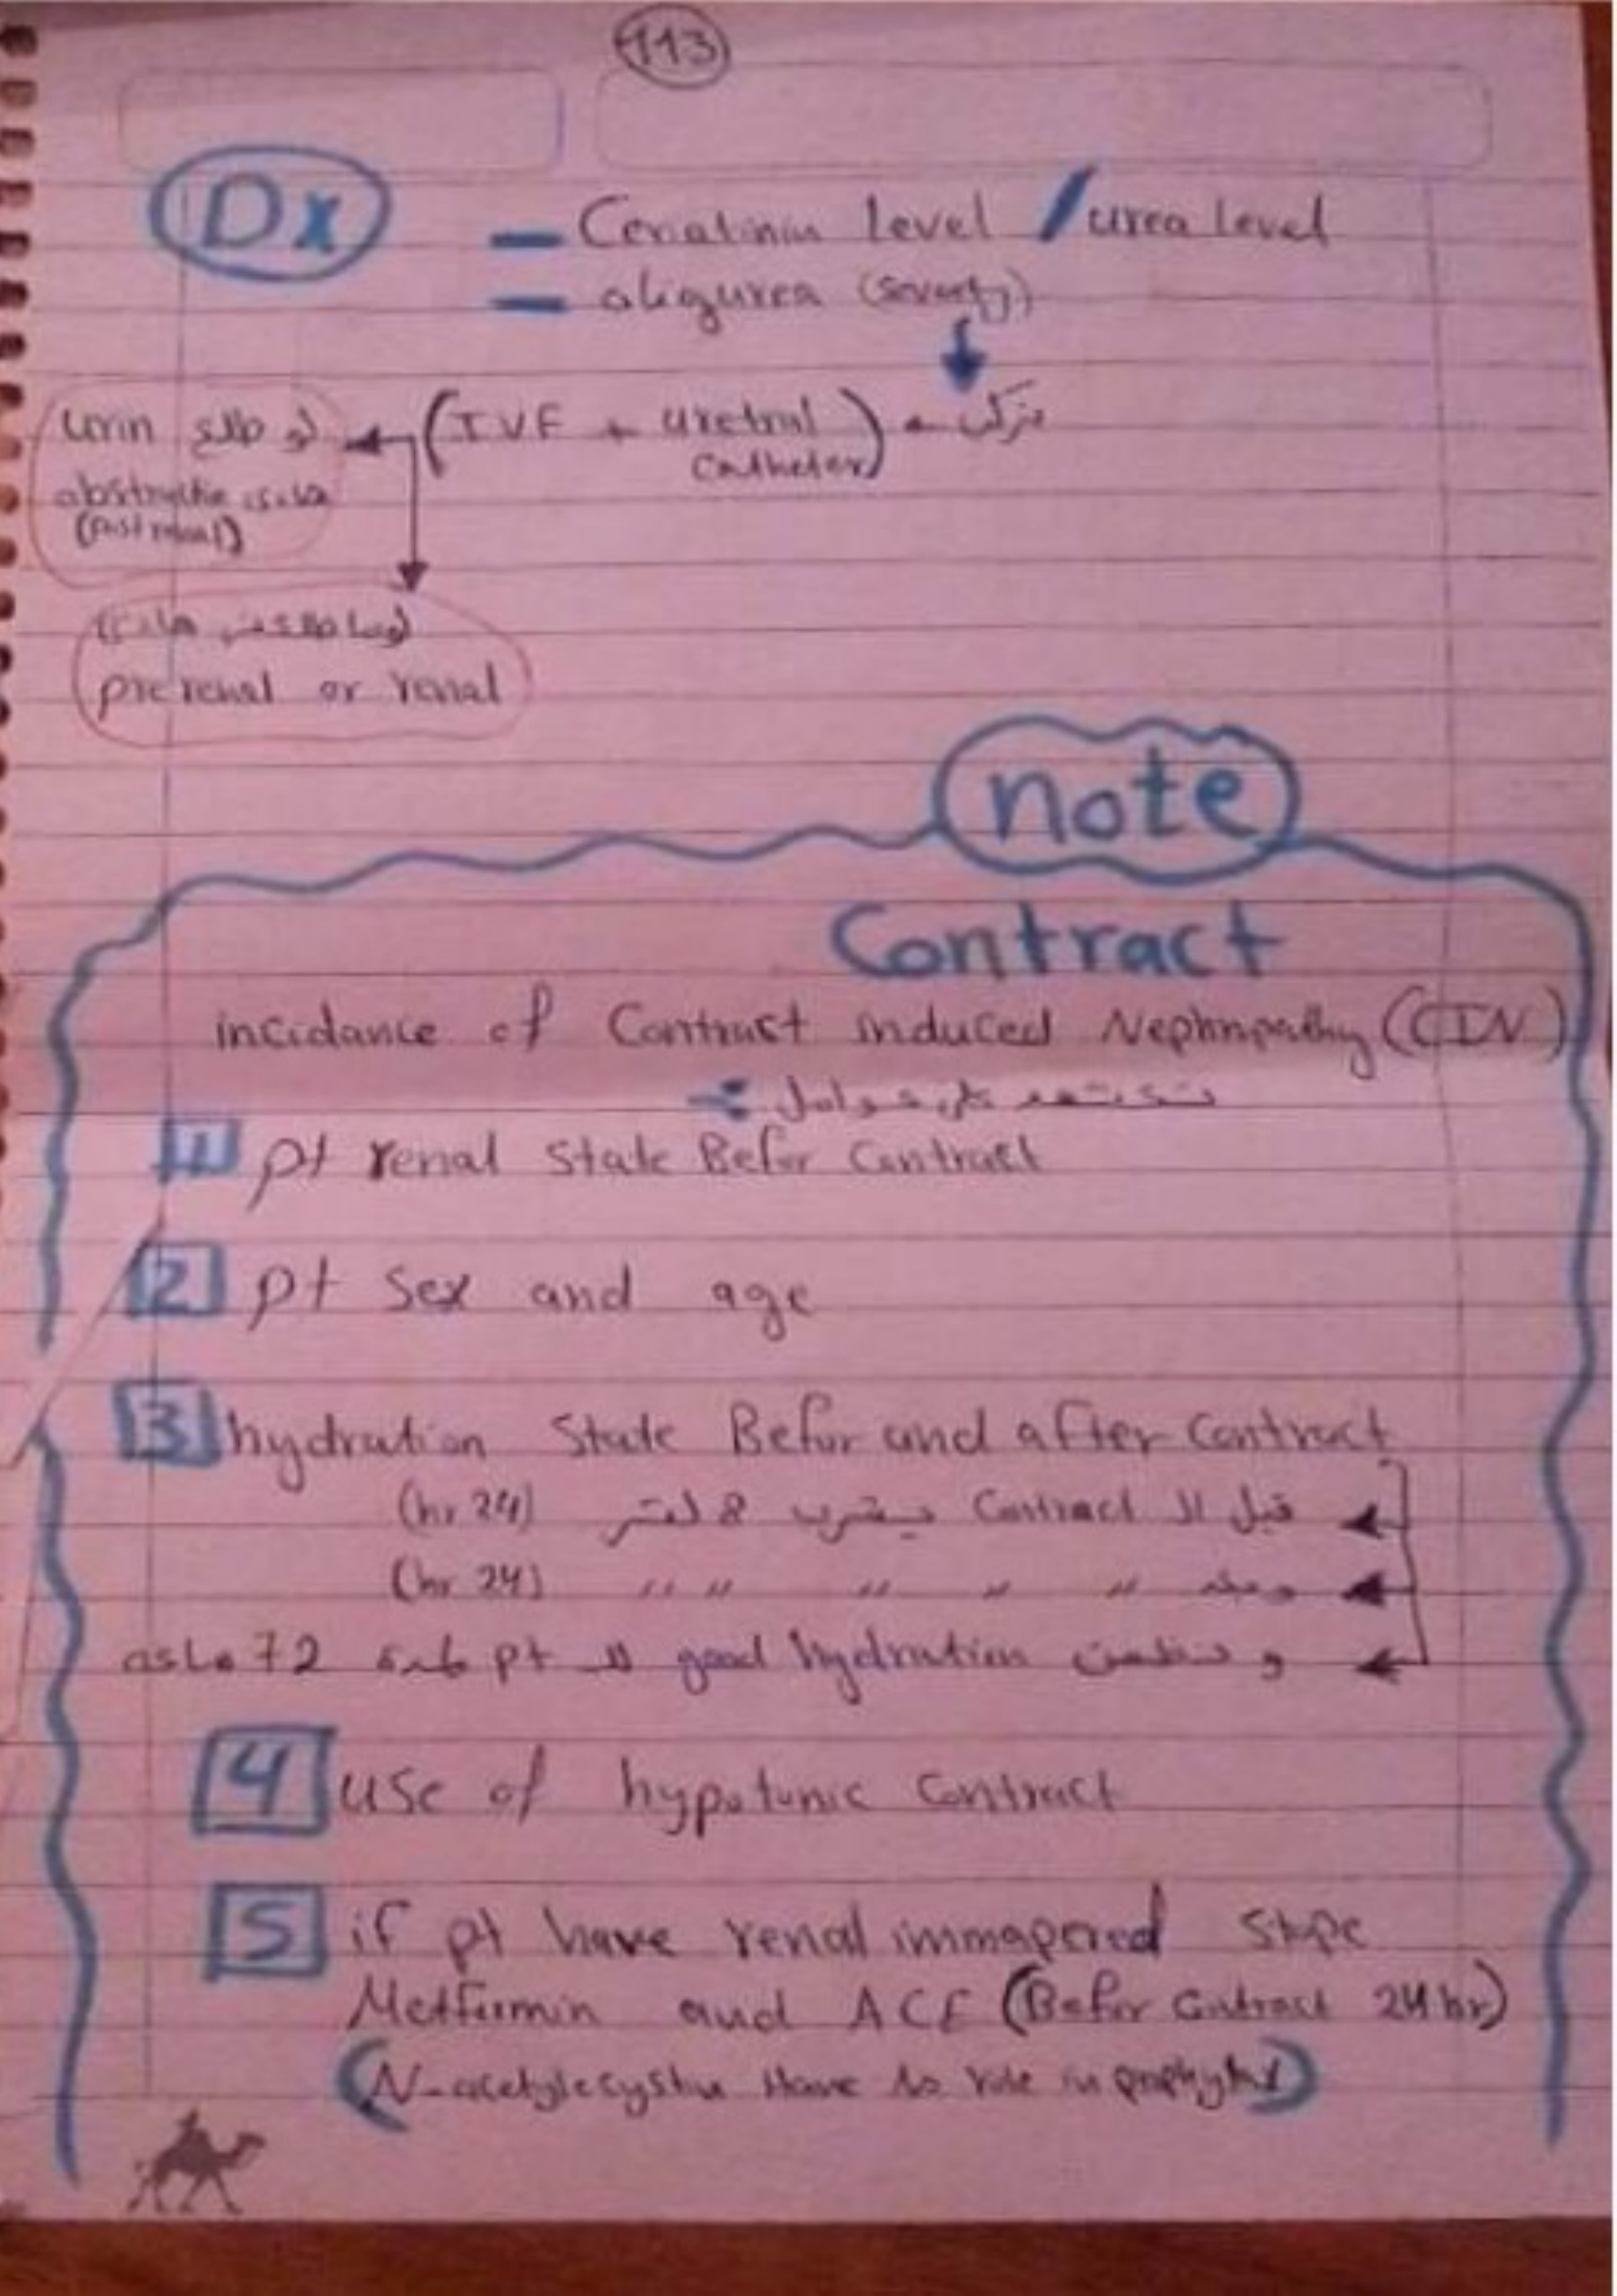 113
Dx
– Cerialinin level / urea level
– oligurea (severty)
بنركب (IVF + uretral
catheter)
لو طلع urin
هادي abstructio
(Post renal)
(لو ما طلعش هادي)
prerenal or renal
note
Contract
incidance of Contract induced Nephropathy (CIN)
بتعتمد على عوامل :-
1 pt renal state Befor Contract
2 pt sex and age
3 hydration state Befor and after Contract
قبل الـ Contract بيشرب 8 لتر (24 hr)
وبعد " " " " " (24 hr)
و نطمن good hydration للـ pt لمدة 72 ساعة
4 use of hypotonic Contract
5 if pt have renal immapered stope
Metformin and ACE (Befor Contract 24 hr)
(N-acetylecystin Have no role in prophylax)